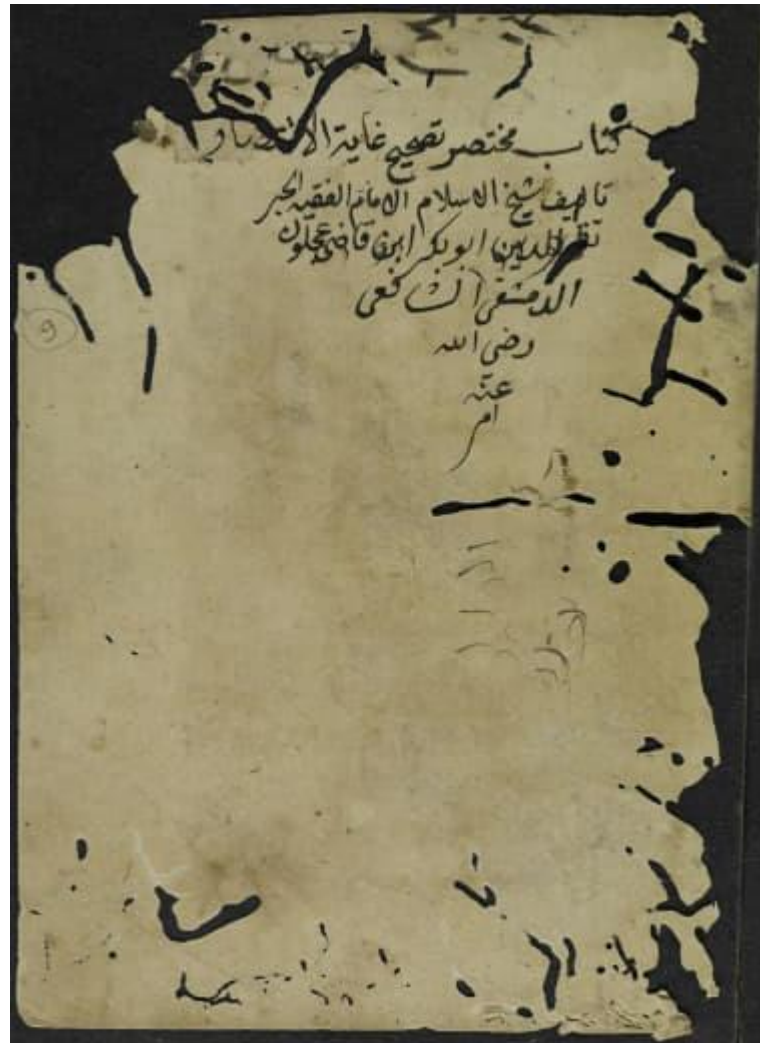 كتاب مختصر تصحيح غاية الاختصار
تاليف شيخ الاسلام الامام الفقيه الحبر
تقى الدين ابو بكر ابن قاضى عجلون
الدمشقى الشافعى
رضى الله
عنه